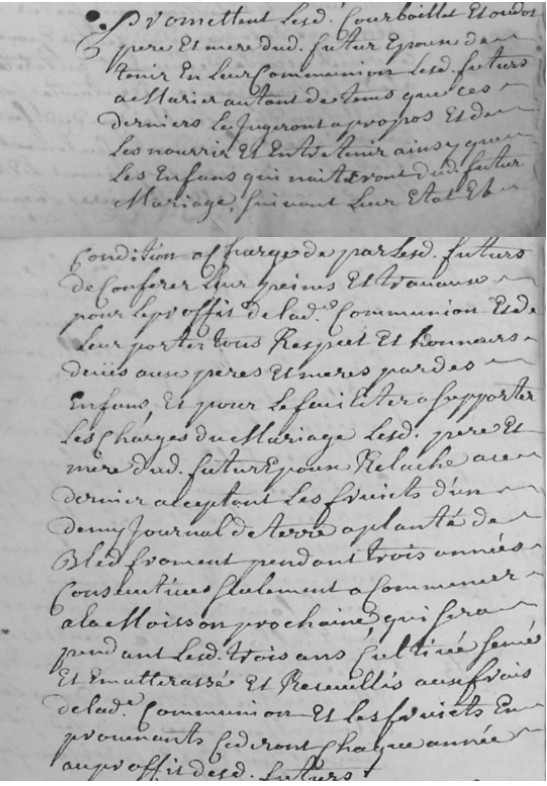 Promettent Lesd. Courbaillot Et oudot
pere Et mere dud. futur Epoux de
tenir En Leur Communion Lesd. futurs
a Marier autant de tems que ces
derniers Le Jugeront apropos Et de
Les nourrir Et Entretenir ainsy que
Les Enfans qui naiteront dud. futur
Mariage, suivant Leur Etat Et
Condition a Charge de par Lesd. futurs
de Conferer Leur peines Et travaux
pour Le proffit de lad.e Communion Et de
Leur porter tous Respect Et honneurs
deües aux peres Et meres par des
Enfans, Et pour Le faciliter a Supporter
Les Charges du Mariage Lesd. pere Et
mere dud. futur Epoux Relache a ce
dernier acceptant Les fruicts d'un
demy Journal de terre a planté de
Bled froment pendant trois années
Consecutives seulement a Commencer
a la Moisson prochaine qui sera
pendant Lesd. trois ans Cultivé semé
Et Ematterassé Et Recuellis aux frais
de lad.e Communion Et Les fruicts En
provenants Cederont Chaque année
au proffit desd. futurs